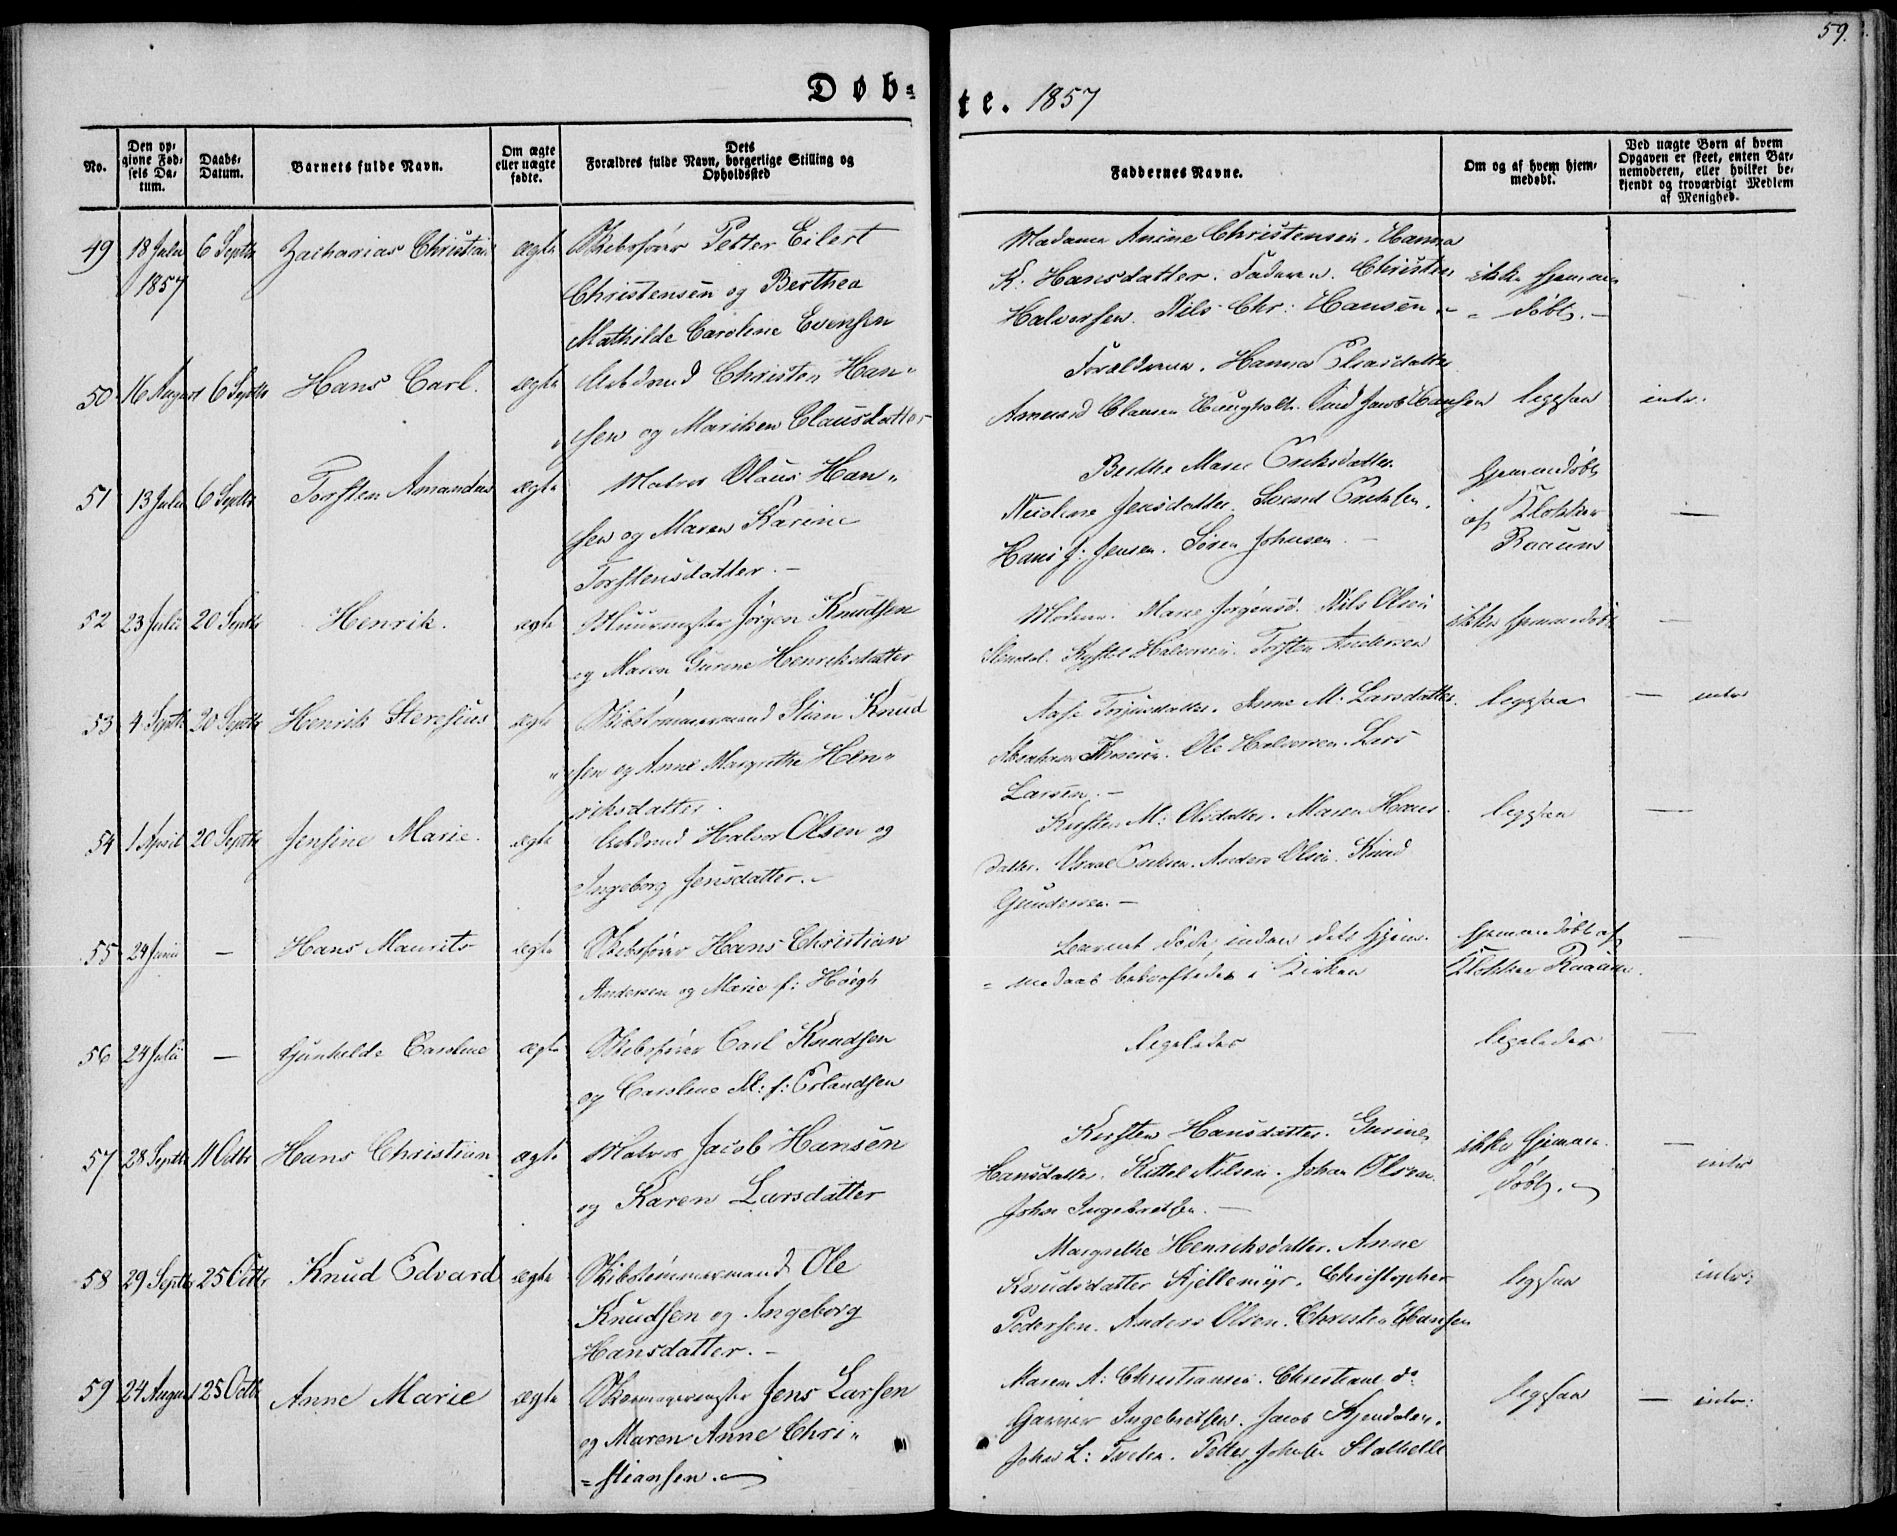 59.
Døb-
te. 1857
No.
Den opgivne Fødsels Datum.
Daabs-Datum.
Barnets fulde Navn.
Om ægte eller uægte fødte.
Dets Forældres fulde Navn, borgerlige Stilling og Opholdssted
Faddernes Navne.
Om og af hvem hjemmedøbt.
Ved uægte Børn af hvem Opgaven er skeet, enten Barnemoderen, eller hvilket bekjendt og troværdigt Medlem af Menighed.
49 18 Julii 1857 6 Septbr Zacharias Christian ægte Skibsfører Petter Eilert
Christensen og Berthea
Mathilde Caroline Evensen
Madame Anine Christensen. Hanna
K. Hansdatter. Faderen. Christen
Halvorsen. Nils Chr: Hansen
ikke hjemme
døbt.
50 16 August 6 Septbr Hans Carl. ægte Arbdmd Christen Han-
sen og Mariken Clausdatter
Forældrene. Hanna
Amund Clausen Jacob Hansen
ligesaa
intr.
51 13 Julii 6 Septbr Torsten Amandus ægte Matros Olaus Han-
sen og Maren Karine
Torstensdatter.
Berthe Marie Eriksdatter
Nicoline Jensdatter. Svend Eriksen.
Hans J: Jensen. Søren Johnsen.
hjemmedøbt
af Klokker
Raaum
52 23 Julii 20 Septbr Henrik. ægte Muurmester Jørgen Knudsen
og Maren Gurine Henriksdatter
Moderen. Maren Jørgensd. Nils Olsen
Stendal. Kystel Halvorsen. Torsten Andersen
ikke hjemmedøbt
53 4 Septb 20 Septbr Henrik Steresius ægte Skibstømmermand Stian Knud
sen og Anne Margrethe Hen-
riksdatter.
Aase Torjusdatter. Anne M. Larsdatter.
Abraham Ole Halvorsen. Lars
Larsen.
ligesaa
intr
54 1 April 20 Septbr Jensine Marie. ægte Arbdmd Halvor Olsen og
Ingeborg Jensdatter.
Kirsten M: Olsdatter. Maren Hans
datter. Anders Olsen. Knud
Gundersen.
ligesaa
55 24 Junii – Hans Maurits ægte Skibsfører Hans Christian
Andersen og Marie f: Høegh
Barnet døde, inden dets hjem-
medaab bekræftedes i Kirken
hjemmedøbt af
Klokker Raaum.
56 24 Julii – Gunhilde Caroline ægte Skibsfører Carl Knudsen
og Caroline M: f: Erlandsen
ligeledes
ligeledes
57 28 Septb 11 Octbr Hans Christian ægte Matros Jacob Hansen
og Karen Larsdatter
Kirsten Hansdatter. Gurine
Hansdatter. Kittel Nilsen. Johan Olsen.
Johan Ingebretsen.
ikke hjemme
døbt.
intr
58 29 Septbr 25 Octbr Knud Edvard ægte Skibstømmermand Ole
Knudsen og Ingeborg
Hansdatter.
Margrethe Henriksdatter. Anne
Knudsdatter Kjellemyr. Christopher
Pedersen. Anders Olsen. Christen Hansen
ligesaa
intr:
59 24 August 25 Octbr Anne Marie ægte Skomagermester Jens Larsen
og Maren Anne Chri-
stiansen.
Maren A: Christiansen. Christiane do
Gariner Ingebretsen. Jacob Kjendalen.
Johan L: Tveten. Petter Johnsen Stathelle
ligesaa
intr: